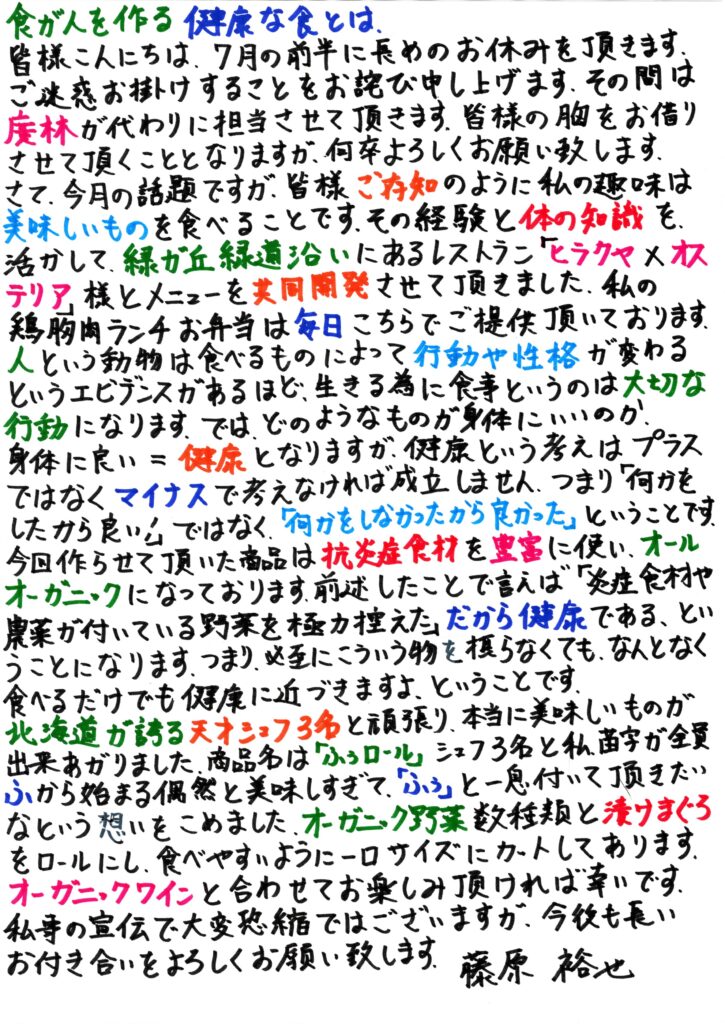 食が人を作る 健康な食とは、
皆様こんにちは、7月の前半に長めのお休みを頂きます、
ご迷惑お掛けすることをお詫び申し上げます、その間は
廣林が代わりに担当させて頂きます、皆様の胸をお借り
させて頂くこととなりますが、何卒よろしくお願い致します、
さて、今月の話題ですが、皆様ご存知のように私の趣味は
美味しいものを食べることです、その経験と体の知識を、
活かして、緑が丘緑道沿いにあるレストラン「ヒラクヤ×オス
テリア」様とメニューを共同開発させて頂きました、私の
鶏胸肉ランチお弁当は毎日こちらでご提供頂いております、
人という動物は食べるものによって行動や性格が変わる
というエビデンスがあるほど、生きる為に食事というのは大切な
行動になります、では、どのようなものが身体にいいのか、
身体に良い=健康となりますが、健康という考えはプラス
ではなくマイナスで考えなければ成立しません、つまり「何かを
したから良い!」ではなく、「何かをしなかったから良かった」ということです、
今回作らせて頂いた商品は抗炎症食材を豊富に使い、オール
オーガニックになっております、前述したことで言えば「炎症食材や
農薬が付いている野菜を極力控えた」だから健康である、とい
うことになります、つまり、必至にこういう物を摂らなくても、なんとなく
食べるだけでも健康に近づきますよ、ということです、
北海道が誇る天才シェフ3名と頑張り、本当に美味しいものが
出来あがりました、商品名は「ふぅロール」シェフ3名と私、苗字が全員
ふから始まる偶然と美味しすぎて、「ふぅ」と一息付いて頂きたい
なという想いをこめました、オーガニック野菜数種類と漬けまぐろ
をロールにし、食べやすいように一口サイズにカットしてあります、
オーガニックワインと合わせてお楽しみ頂ければ幸いです、
私事の宣伝で大変恐縮ではございますが、今後も長い
お付き合いをよろしくお願い致します、 藤原 裕也